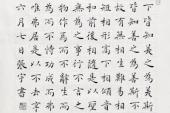 下皆知美之為美斯
皆知善之為善斯不
故有無相生難易相
短相形高下相傾音
和前後相隨是以聖
無為之事行不言之
物作焉而不辭生而
為而不恃功成而弗
唯弗居是以不去
六月七日張宇書